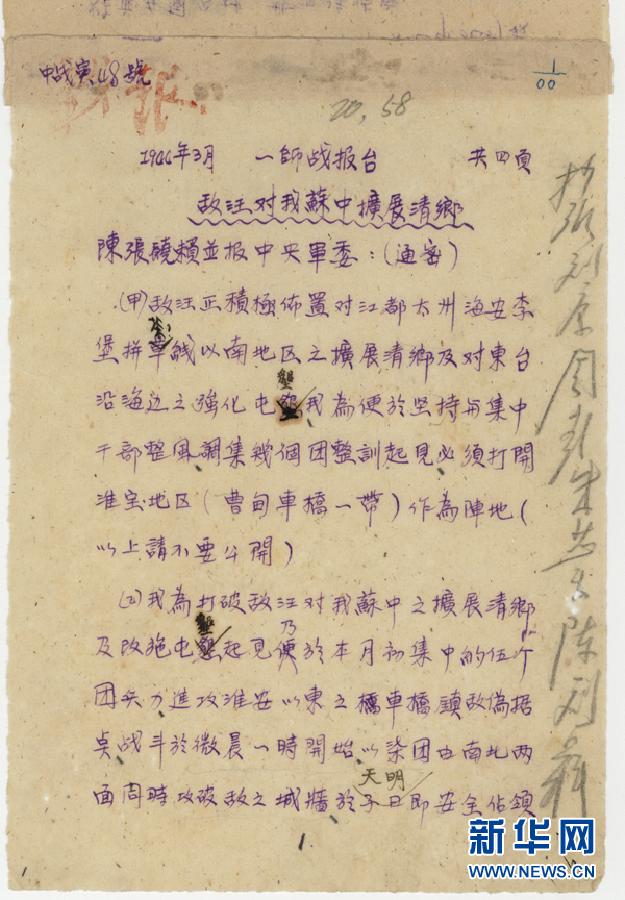 中战寅48號
1/00
20,58
194 年3月 一師战报台 共四頁
敌汪对我蘇中擴展清鄉
陳張饒賴並报中央軍委：(通密)
(甲)敌汪正積極佈置对江都太州海安李
堡拼 線以南地区之擴展清鄉及对東台
沿海边之強化屯墾我為便於坚持与集中
干部整風調集幾個团整訓起見必須打開
淮宝地区(曹甸車橋一帶)作為陣地(
以上請不要公開)
(乙)我為打破敌汪对我蘇中之擴展清鄉
及改施屯墾起見乃便於本月初集中的伍个
团兵力進攻淮安以東之橋車橋鎮敌偽据
点战斗於微晨一時開始以 团由南北两
面同時攻破敌之城牆於天明即安全佔領
1
新华网
WWW.NEWS.CN